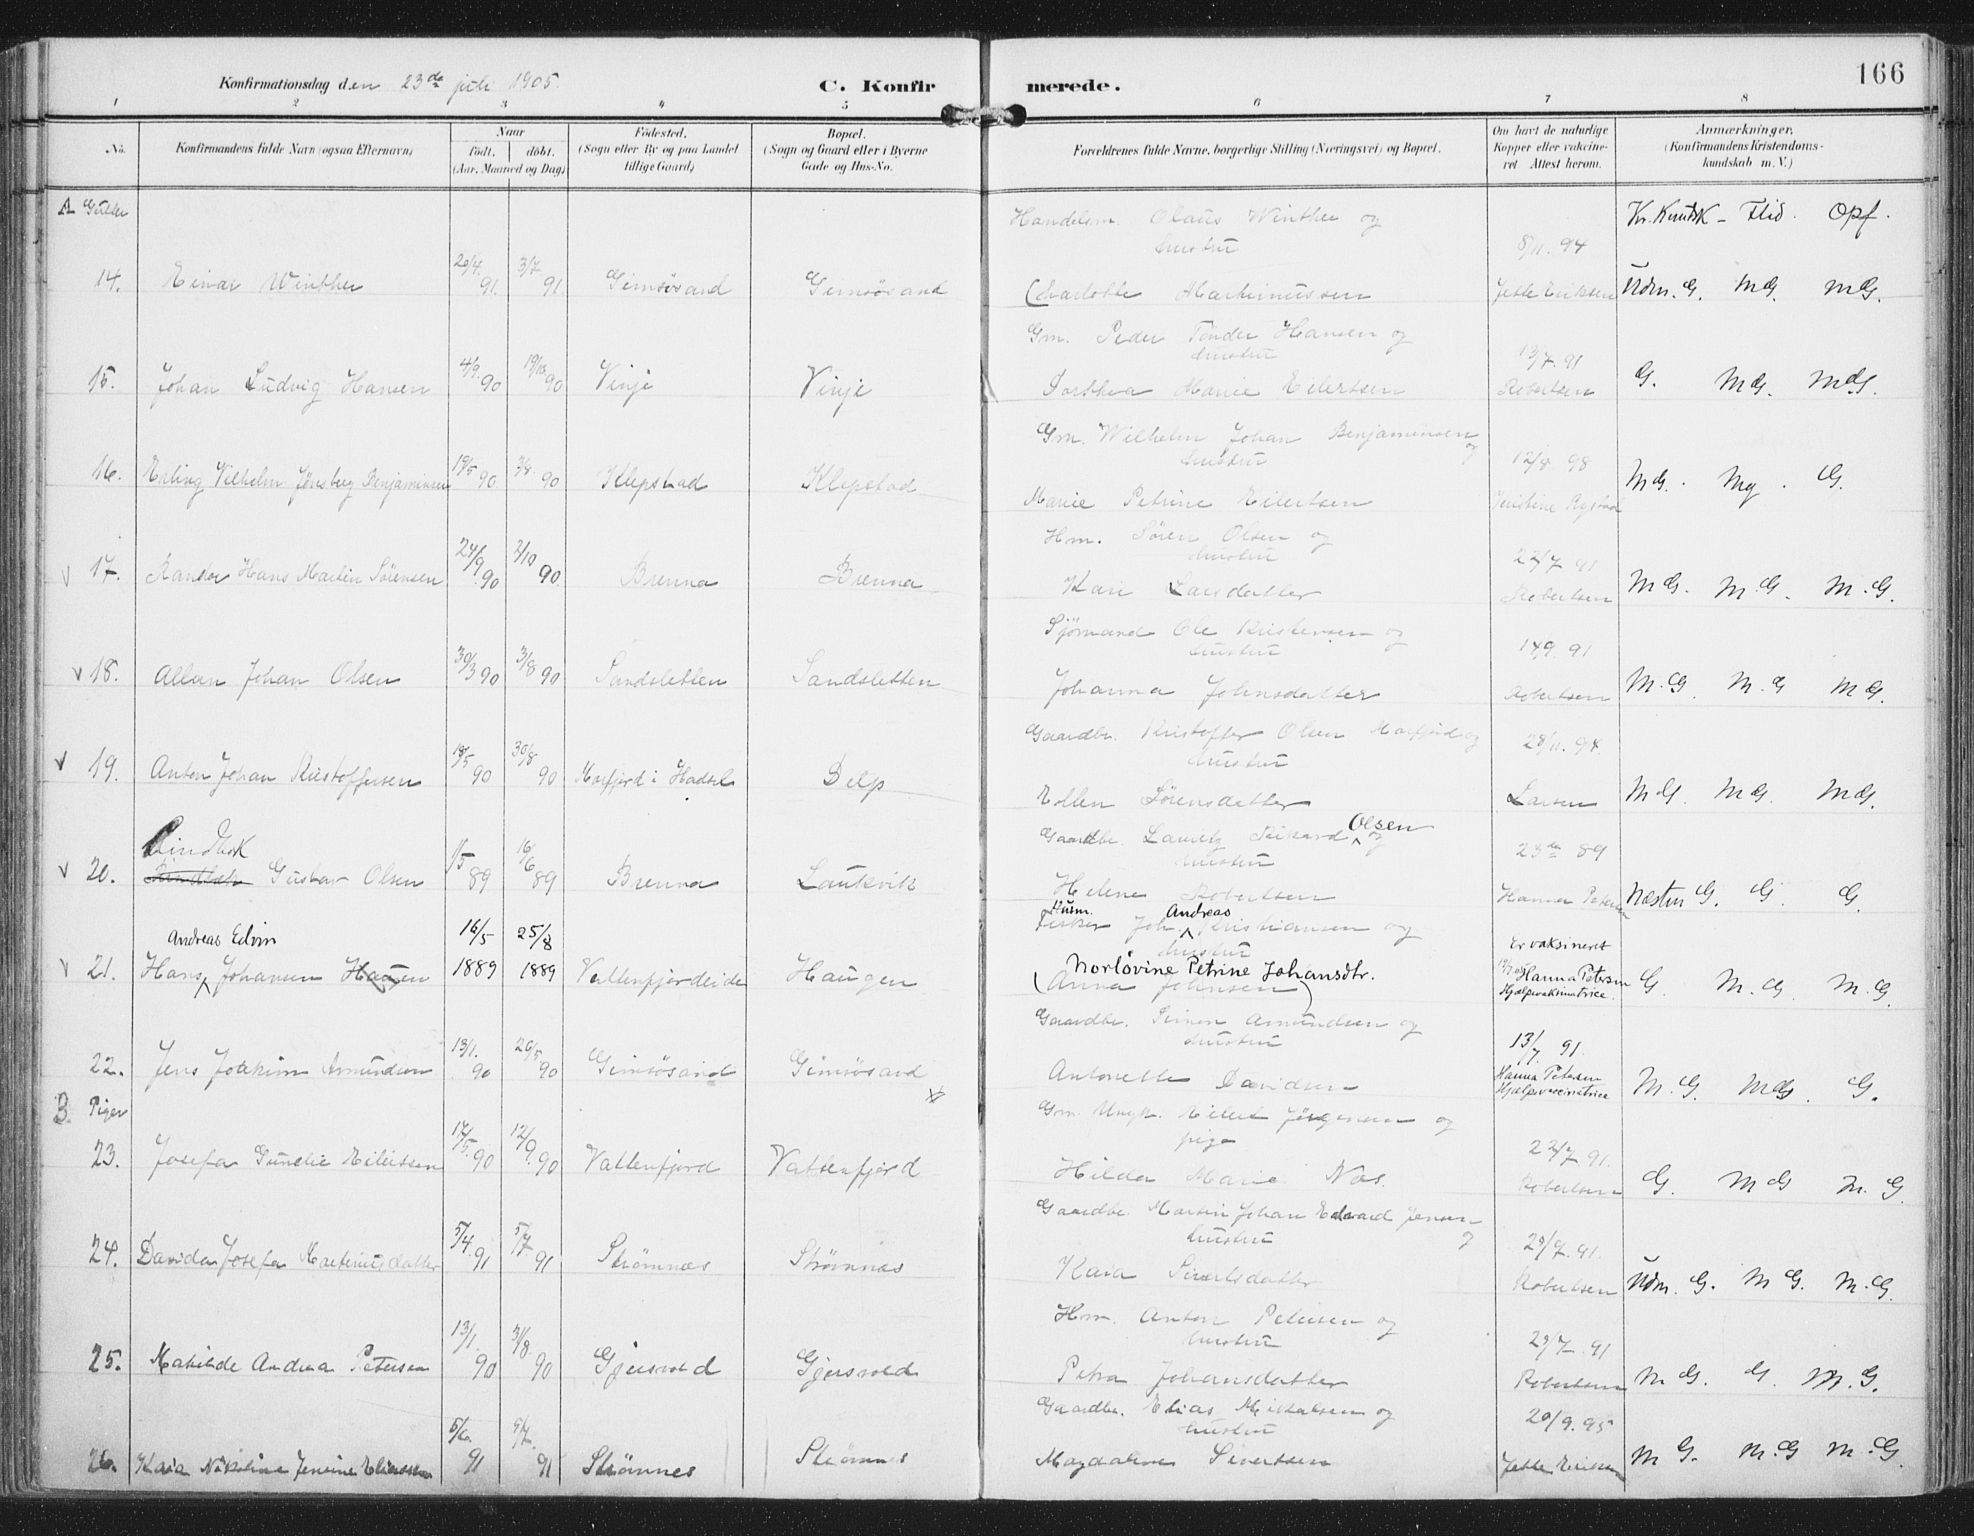 166
Konfirmationsdag den 23de juli 1905.
C. Konfirmerede.
1 2 3 4 5 6 7 8
No.
Konfirmandens fulde Navn (ogsaa Efternavn)
Naar
født, døbt.
(Aar, Maaned og Dag)
Fødested.
(Sogn eller By og paa Landet tillige Gaard)
Bopæl.
(Sogn og Gaard eller i Byerne Gade og Hus-No.
Forældrenes fulde Navne, borgerlige Stilling (Næringsvei) og Bopæl.
Om havt de naturlige Kopper eller vaksineret Attest herom.
Anmærkninger.
(Konfirmandens Kristendomskundskab m. V.)
A Gutter
Kr. Kundsk - Flid. Opf.
Handelsm. Olaus Winther og
hustru
8/11. 94
14. Einar Winther 20/4. 91. 3/7 91 Gimsösand Gimsösand Charlotte Martinussen Jette Eriksen Udm. G. MG. MG.
Gm. Peder Tönder Hansen og
hustru
13/7. 91
15. Johan Ludvig Hansen 4/9. 90 19/10 90 Vinje Vinje Dorthea Marie Eilertsen Robertsen G. MG. MG.
Gm. Wilhelm Johan Benjaminsen og
hustru
12/8 98
16. Erling Vilhelm Jönsberg Benjaminsen 19/5 90 3/8. 90 Klepstad Klepstad Marie Petrine Eilertsen Kristine Rystad MG. Mg. G.
Hm. Sören Olsen og
hustru
22/7 91
v 17. Randor Hans Martin Sörensen 24/9. 90 2/10 90 Brenna Brenna Kari Larsdatter Robertsen MG. M.G. M.G.
Sjömand Ole Kristensen og
hustru
14/9. 91
v 18. Allan Johan Olsen 30/3 90 3/8 90 Sandsletten Sandsletten Johanna Johnsdatter Robertsen M.G. M.G MG.
Gaardbr. Kristoffer Olsen Morfjord og
hustru
28/11. 94
v 19. Anton Johan Kristoffersen 18/5 90 30/8 90 Morfjord i Hadsel Delp Ellen Sörensdatter Larsen MG. MG. MG.
Lindbak
Gaardbr. Lauritz Rikard Olsen og
hustru
23de 89
v 20. Gustav Olsen 1/5 89 16/6 89 Brenna Laukvik Helene Robertsen Hanna Petersen Næsten G. G. G.
Husm. Fisker Joh. Andreas Kristiansen og
hustru
Andreas Edvin 16/5 25/8
Er vaksineret
v 21. Hans Johansen Haugen 1889 1889 Vattenfjordeide Haugen
Norlövine Petrine Johansdtr.
(Anna Johnsen)
Hanna Petersen
Hjælpevaksinatrice.
G. M.G. M.G.
Gaardbr. Simon Amundsen og
hustru
13/7. 91.
22. Jens Joakim Amundsen 13/1. 90 26/5. 90 Gimsösand Gimsösand Antonette Davidsen
Hanna Petersen
Hjælpevaccinatrice
M.G. MG. G.
B. Piger
Gm. Ungk. Eilert Jörgensen og
pige
22/7 91.
23. Josefa Gunelie Eilertsen 17/5. 90 12/9. 90 Vattenfjord Vattenfjord Hilda Marie Næs. Robertsen G. MG M.G.
Gaardbr. Martin Johan Edvard Jensen og
hustru
29/7. 91.
24. Davida Josefa Martinusdatter 5/4. 91 5/7. 91 Strömnæs Strömnæs Kaia Sivertsdatter Robertsen Udm. G. MG. M.G.
Hm. Anton Petersen og
hustru
29/7. 91
25. Matilde Andrea Petersen 13/1. 90 31/8. 90 Gjersvold Gjersvold Petra Johansdatter Robertsen MG. G. M.G.
Gaardbr. Elias Mikalsen og
hustru
20/9. 95
26. Kaia Nikoline Jensine Eliassen 91 5/7. 91 Strömnes Strömnes Magdalena Sivertsen Jette Eriksen M G. M.G M.G.